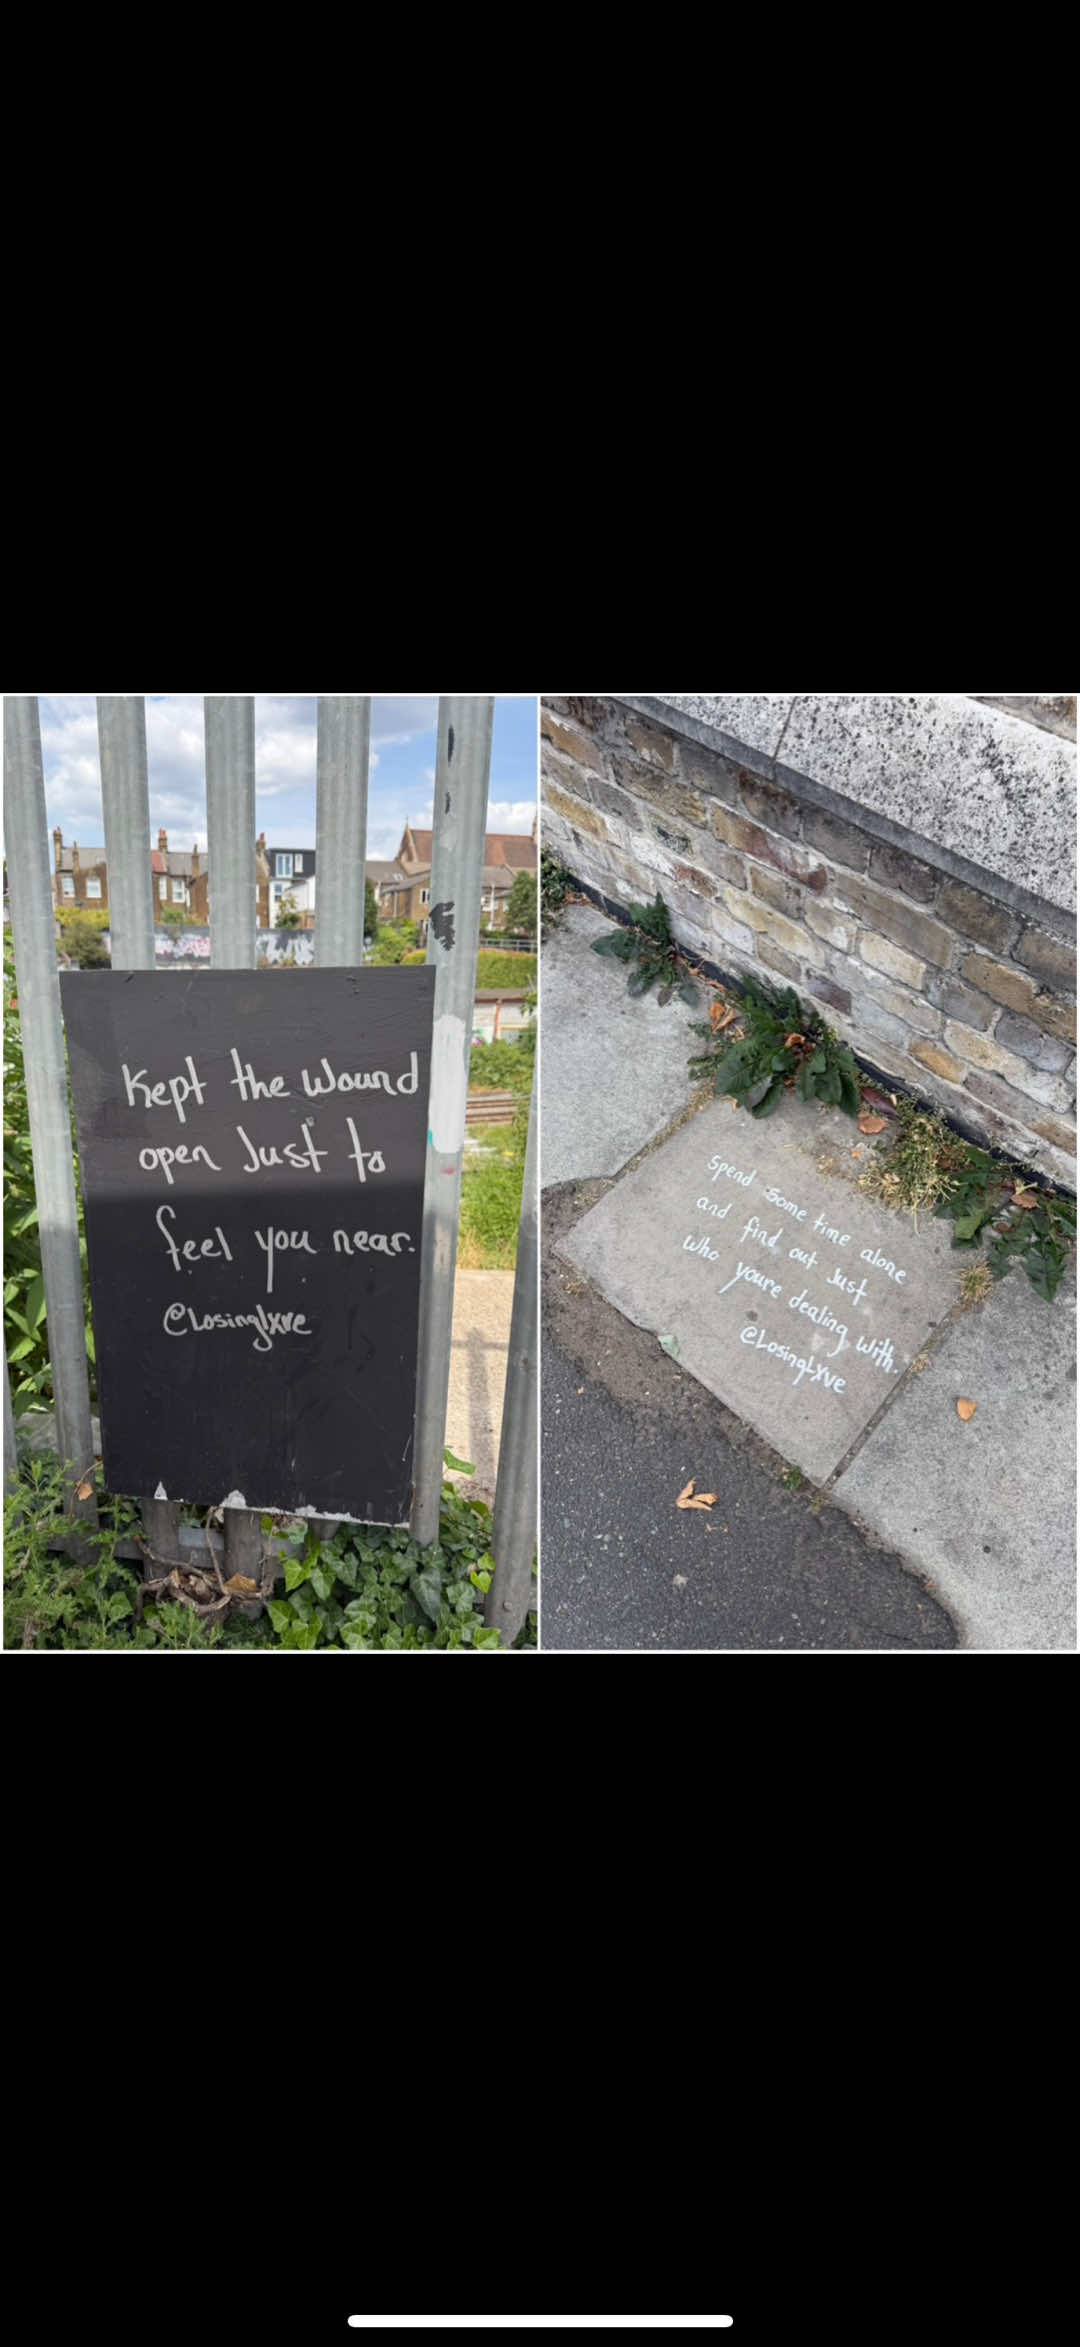 Kept the Wound
open Just to
feel you near.
@Losinglxve
Spend some time alone
and find out Just
Who youre dealing with.
@LosingLXve